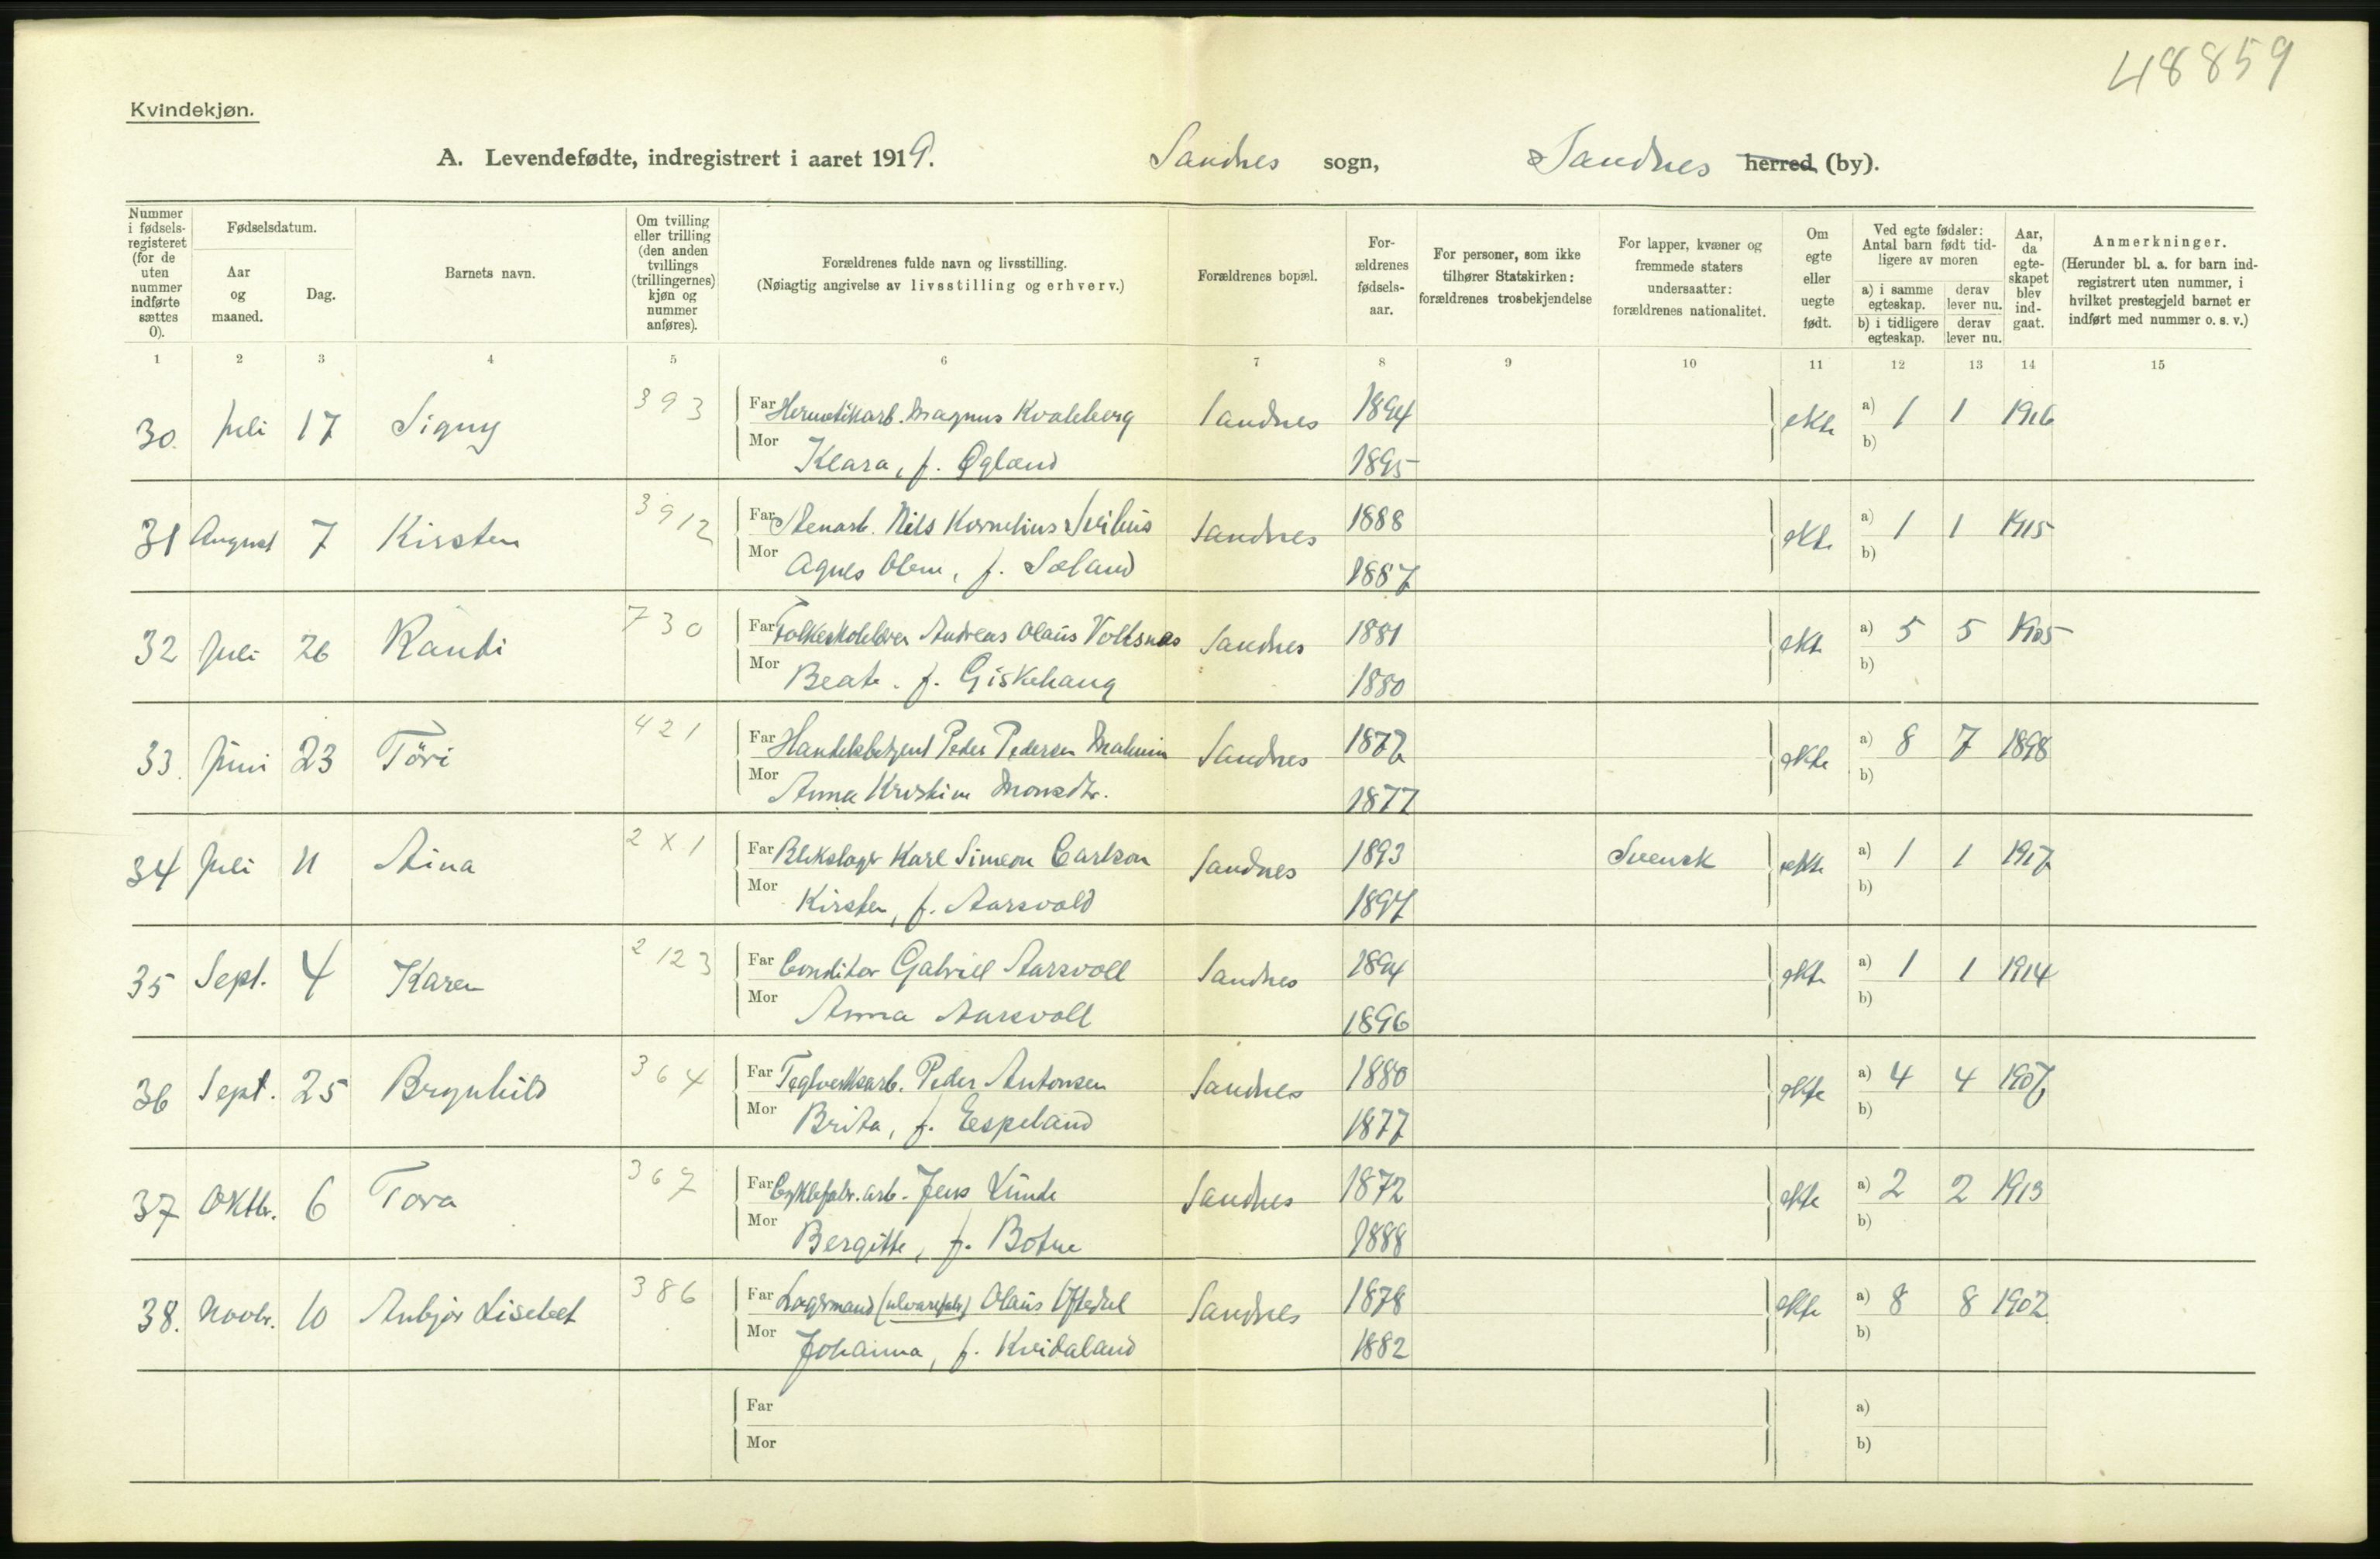 48859
Kvindekjøn.
A. Levendefødte, indregistrert i aaret 1919. Sandnes sogn, Sandnes herred (by).
Nummer i fødsels-registeret (for de uten nummer indførte sættes 0).
Fødselsdatum.
Aar og maaned.
Dag.
Barnets navn.
Om tvilling eller trilling (den anden tvillings (trillingernes) kjøn og nummer anføres).
Forældrenes fulde navn og livsstilling.
(Nøiagtig angivelse av livsstilling og erhverv.)
Forældrenes bopæl.
For-ældrenes fødsels-aar.
For personer, som ikke tilhører Statskirken: forældrenes trosbekjendelse
For lapper, kvæner og fremmede staters undersaatter: forældrenes nationalitet.
Om egte eller uegte født.
Ved egte fødsler: Antal barn født tid-ligere av moren
a) i samme egteskap. derav lever nu.
b) i tidligere egteskap. derav lever nu.
Aar, da egte-skapet blev ind-gaat.
Anmerkninger.
(Herunder bl. a. for barn ind-registrert uten nummer, i hvilket prestegjeld barnet er indført med nummer o. s. v.)
1 2 3 4 5 6 7 8 9 10 11 12 13 14 15
30. Juli 17 Signy 393 Far Hermetikarb. Magnus Kvaleberg Sandnes 1894 ekte a) 1 1 1916
Mor Klara, f. Øgland 1895 b)
31 August 7 Kirsten 3912 Far Stenarb. Nils Kornelius Svihus Sandnes 1888 ekte a) 1 1 1915
Mor Agnes Olene, f. Sæland 1887 b)
32 Juli 26 Randi 730 Far Folkeskolelærer Andreas Olaus Volksnes Sandnes 1881 ekte a) 5 5 1905
Mor Beate. f. Giskehaug 1880 b)
33. Juni 23 Tóri 421 Far Handelsbetjent Peder Pedersen Malmin Sandnes 1872 ekte a) 8 7 1898
Mor Anna Kristine Monsdtr. 1877 b)
34 Juli 11 Aina 2 X 1 Far Blikslager Karl Simeon Carlson Sandnes 1893 Svensk ekte a) 1 1 1917
Mor Kirsten, f. Aarsvold 1897 b)
35 Sept. 4 Karen 2123 Far Conditor Gabriel Aarsvoll Sandnes 1894 ekte a) 1 1 1914
Mor Anna Aarsvoll 1896 b)
36 Sept. 25 Brynhild 364 Far Teglverksarb. Peder Antonsen Sandnes 1880 ekte a) 4 4 1907
Mor Brita, f. Espeland 1877 b)
37 Oktbr. 6 Tora 367 Far Cyklefabr. arb. Jens Lunde Sandnes 1872 ekte a) 2 2 1913
Mor Bergitte, f. Botne 1888 b)
38. Novbr. 10 Anbjør Lisebet 386 Far Lagermand (ulvarefabr) Olaus Oftedal Sandnes 1878 ekte a) 8 8 1902
Mor Johanna, f. Kvidaland 1882 b)
Far a)
Mor b)